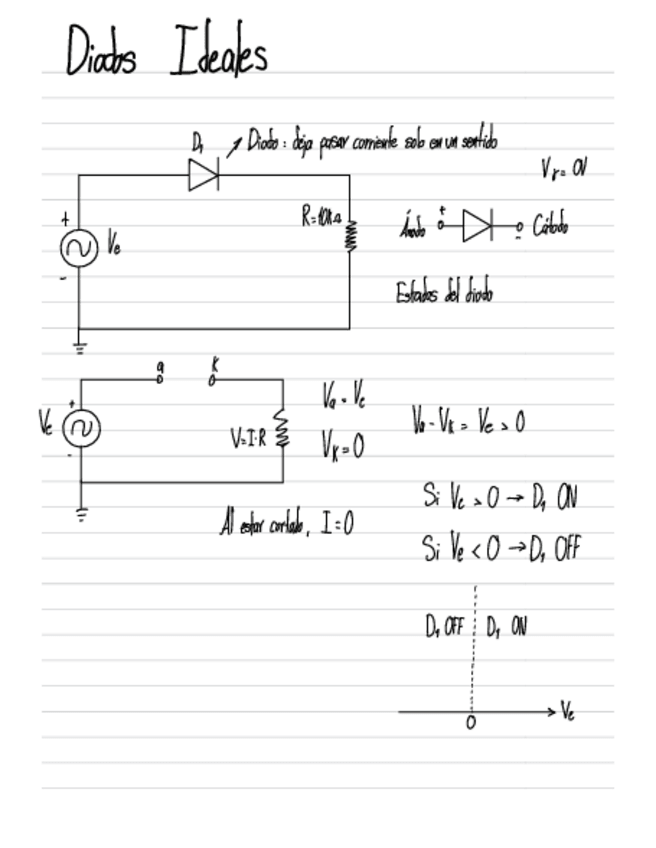 Diodos Ideales
D₁
Diodo: deja pasar corriente solo en un sentido
Vγ = 0V
+
Ve
-
R=10kΩ
Ánodo + - Cátodo
Estados del diodo
a
K
Ve
+
-
V=I·R
Va = Ve
VK = 0
Va - VK = Ve > 0
Al estar cortado, I=0
Si Ve > 0 → D₁ ON
Si Ve < 0 → D₁ OFF
D₁ OFF
D₁ ON
0
Ve